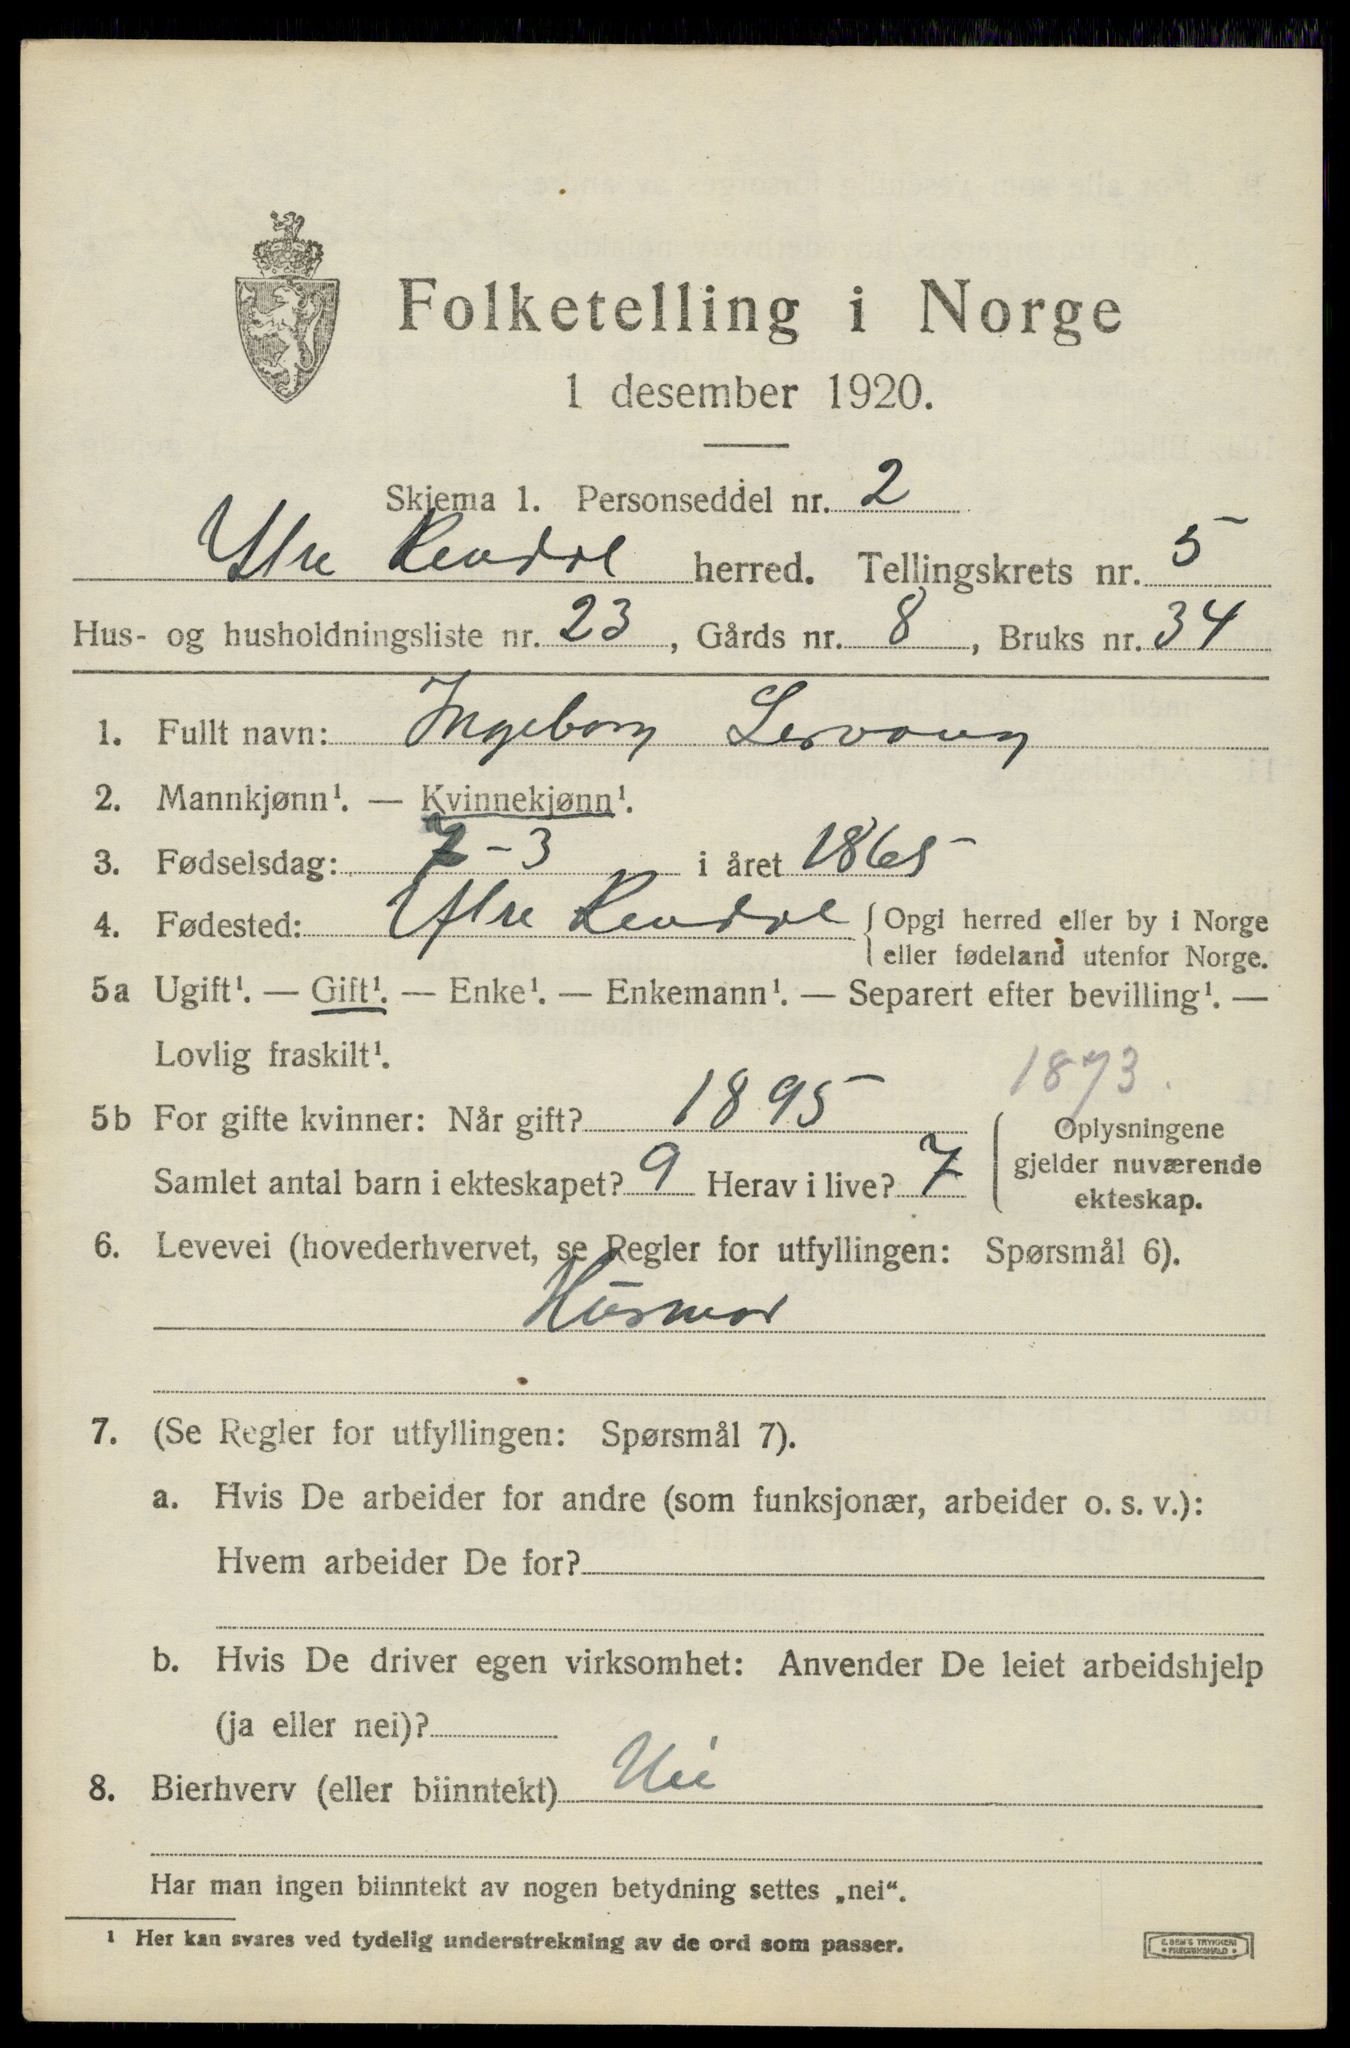 Folketelling i Norge
1 desember 1920.
Skjema 1. Personseddel nr. 2
Ytre Rendal herred. Tellingskrets nr. 5
Hus- og husholdningsliste nr. 23, Gårds nr. 8, Bruks nr. 34
1. Fullt navn: Ingeborg
2. Mannkjønn¹. — Kvinnekjønn¹.
3. Fødselsdag: 7-3 i året 1865
4. Fødested: Ytre Rendal { Opgi herred eller by i Norge
eller fødeland utenfor Norge.
5a Ugift¹. — Gift¹. — Enke¹. — Enkemann¹. — Separert efter bevilling¹. —
Lovlig fraskilt¹.
1873.
5b For gifte kvinner: Når gift? 1895
Samlet antal barn i ekteskapet? 9 Herav i live? 7
Oplysningene
gjelder nuværende
ekteskap.
6. Levevei (hovederhvervet, se Regler for utfyllingen: Spørsmål 6).
Husmor
7. (Se Regler for utfyllingen: Spørsmål 7).
a. Hvis De arbeider for andre (som funksjonær, arbeider o. s. v.):
Hvem arbeider De for?
b. Hvis De driver egen virksomhet: Anvender De leiet arbeidshjelp
(ja eller nei)?
8. Bierhverv (eller biinntekt) Nei
Har man ingen biinntekt av nogen betydning settes „nei“.
¹ Her kan svares ved tydelig understrekning av de ord som passer.
E. SEM'S TRYKKERI
• FREDRIKSHALD •